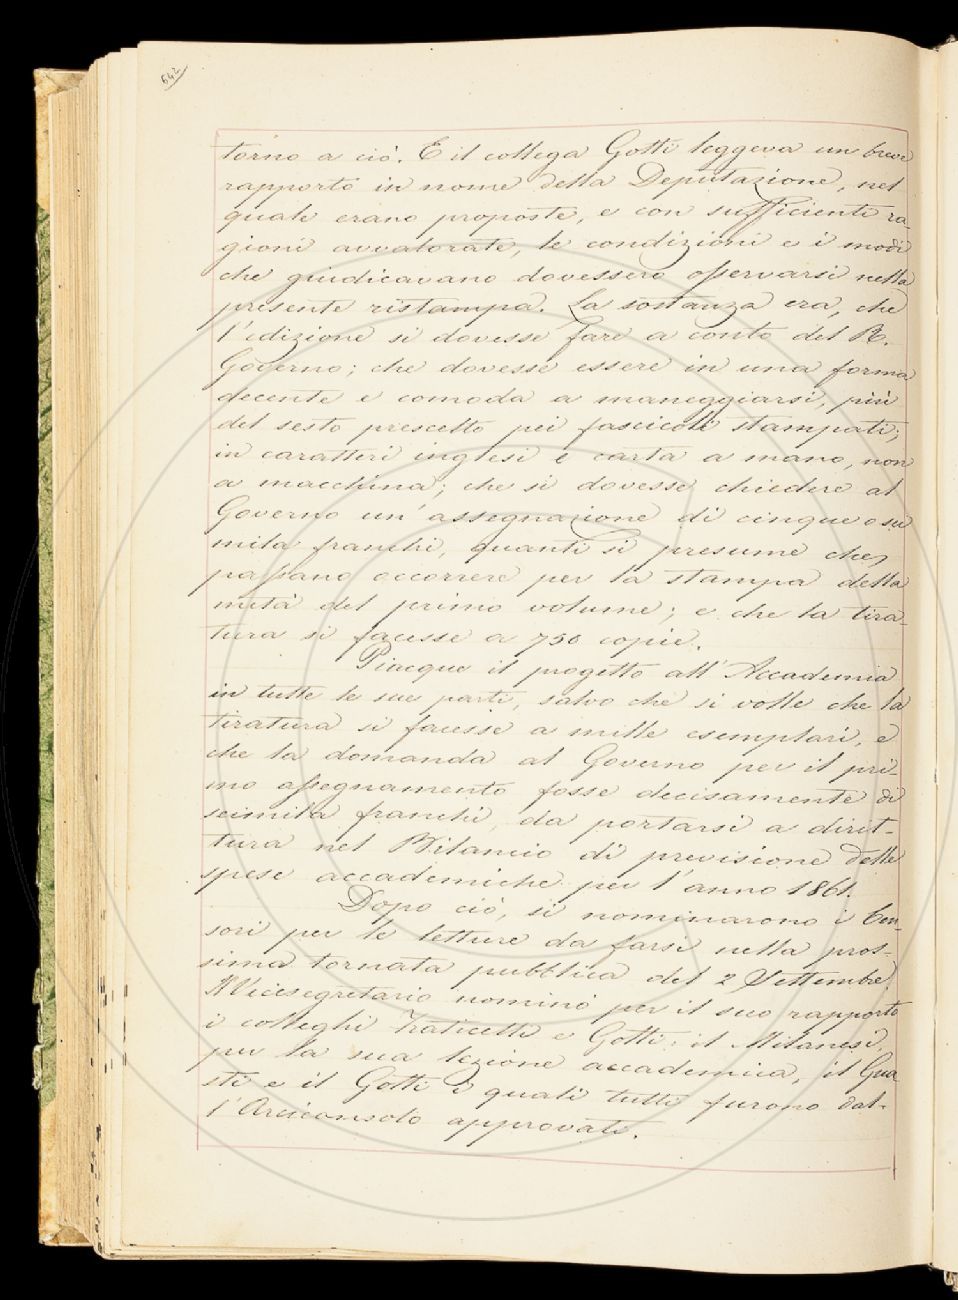 642
torno a ciò. E il collega Gotti leggeva un breve
rapporto in nome della Deputazione, nel
quale erano proposte, e con sufficienti ra-
gioni avvalorate, le condizioni e i modi
che giudicavano dovessero osservarsi nella
presente ristampa. La sostanza era, che
l'edizione si dovesse fare a conto del R.
Governo; che dovesse essere in una forma
decente e comoda a maneggiarsi, più
del sesto prescelto pei fascicoli stampati;
in caratteri inglesi e carta a mano, non
a macchina; che si dovesse chiedere al
Governo un'assegnazione di cinque o sei
mila franchi, quanti si presume che
possano occorrere per la stampa della
metà del primo volume; e che la tira-
tura si facesse a 750 copie.
Piacque il progetto all'Accademia
in tutte le sue parti, salvo che si volle che la
tiratura si facesse a mille esemplari, e
che la domanda al Governo per il pri-
mo assegnamento fosse decisamente di
seimila franchi, da portarsi a dirit-
tura nel Bilancio di previsione delle
spese accademiche per l'anno 1861.
Dopo ciò, si nominarono i Cen-
sori per le letture da farsi nella pros-
sima tornata pubblica del 2 Settembre.
Il Vicesegretario nominò per il suo rapporto
i colleghi Fraticelli e Gotti; il Milanesi,
per la sua lezione accademica, il Gua
sti e il Gotti i quali tutti furono dal-
l'Arciconsolo approvati.